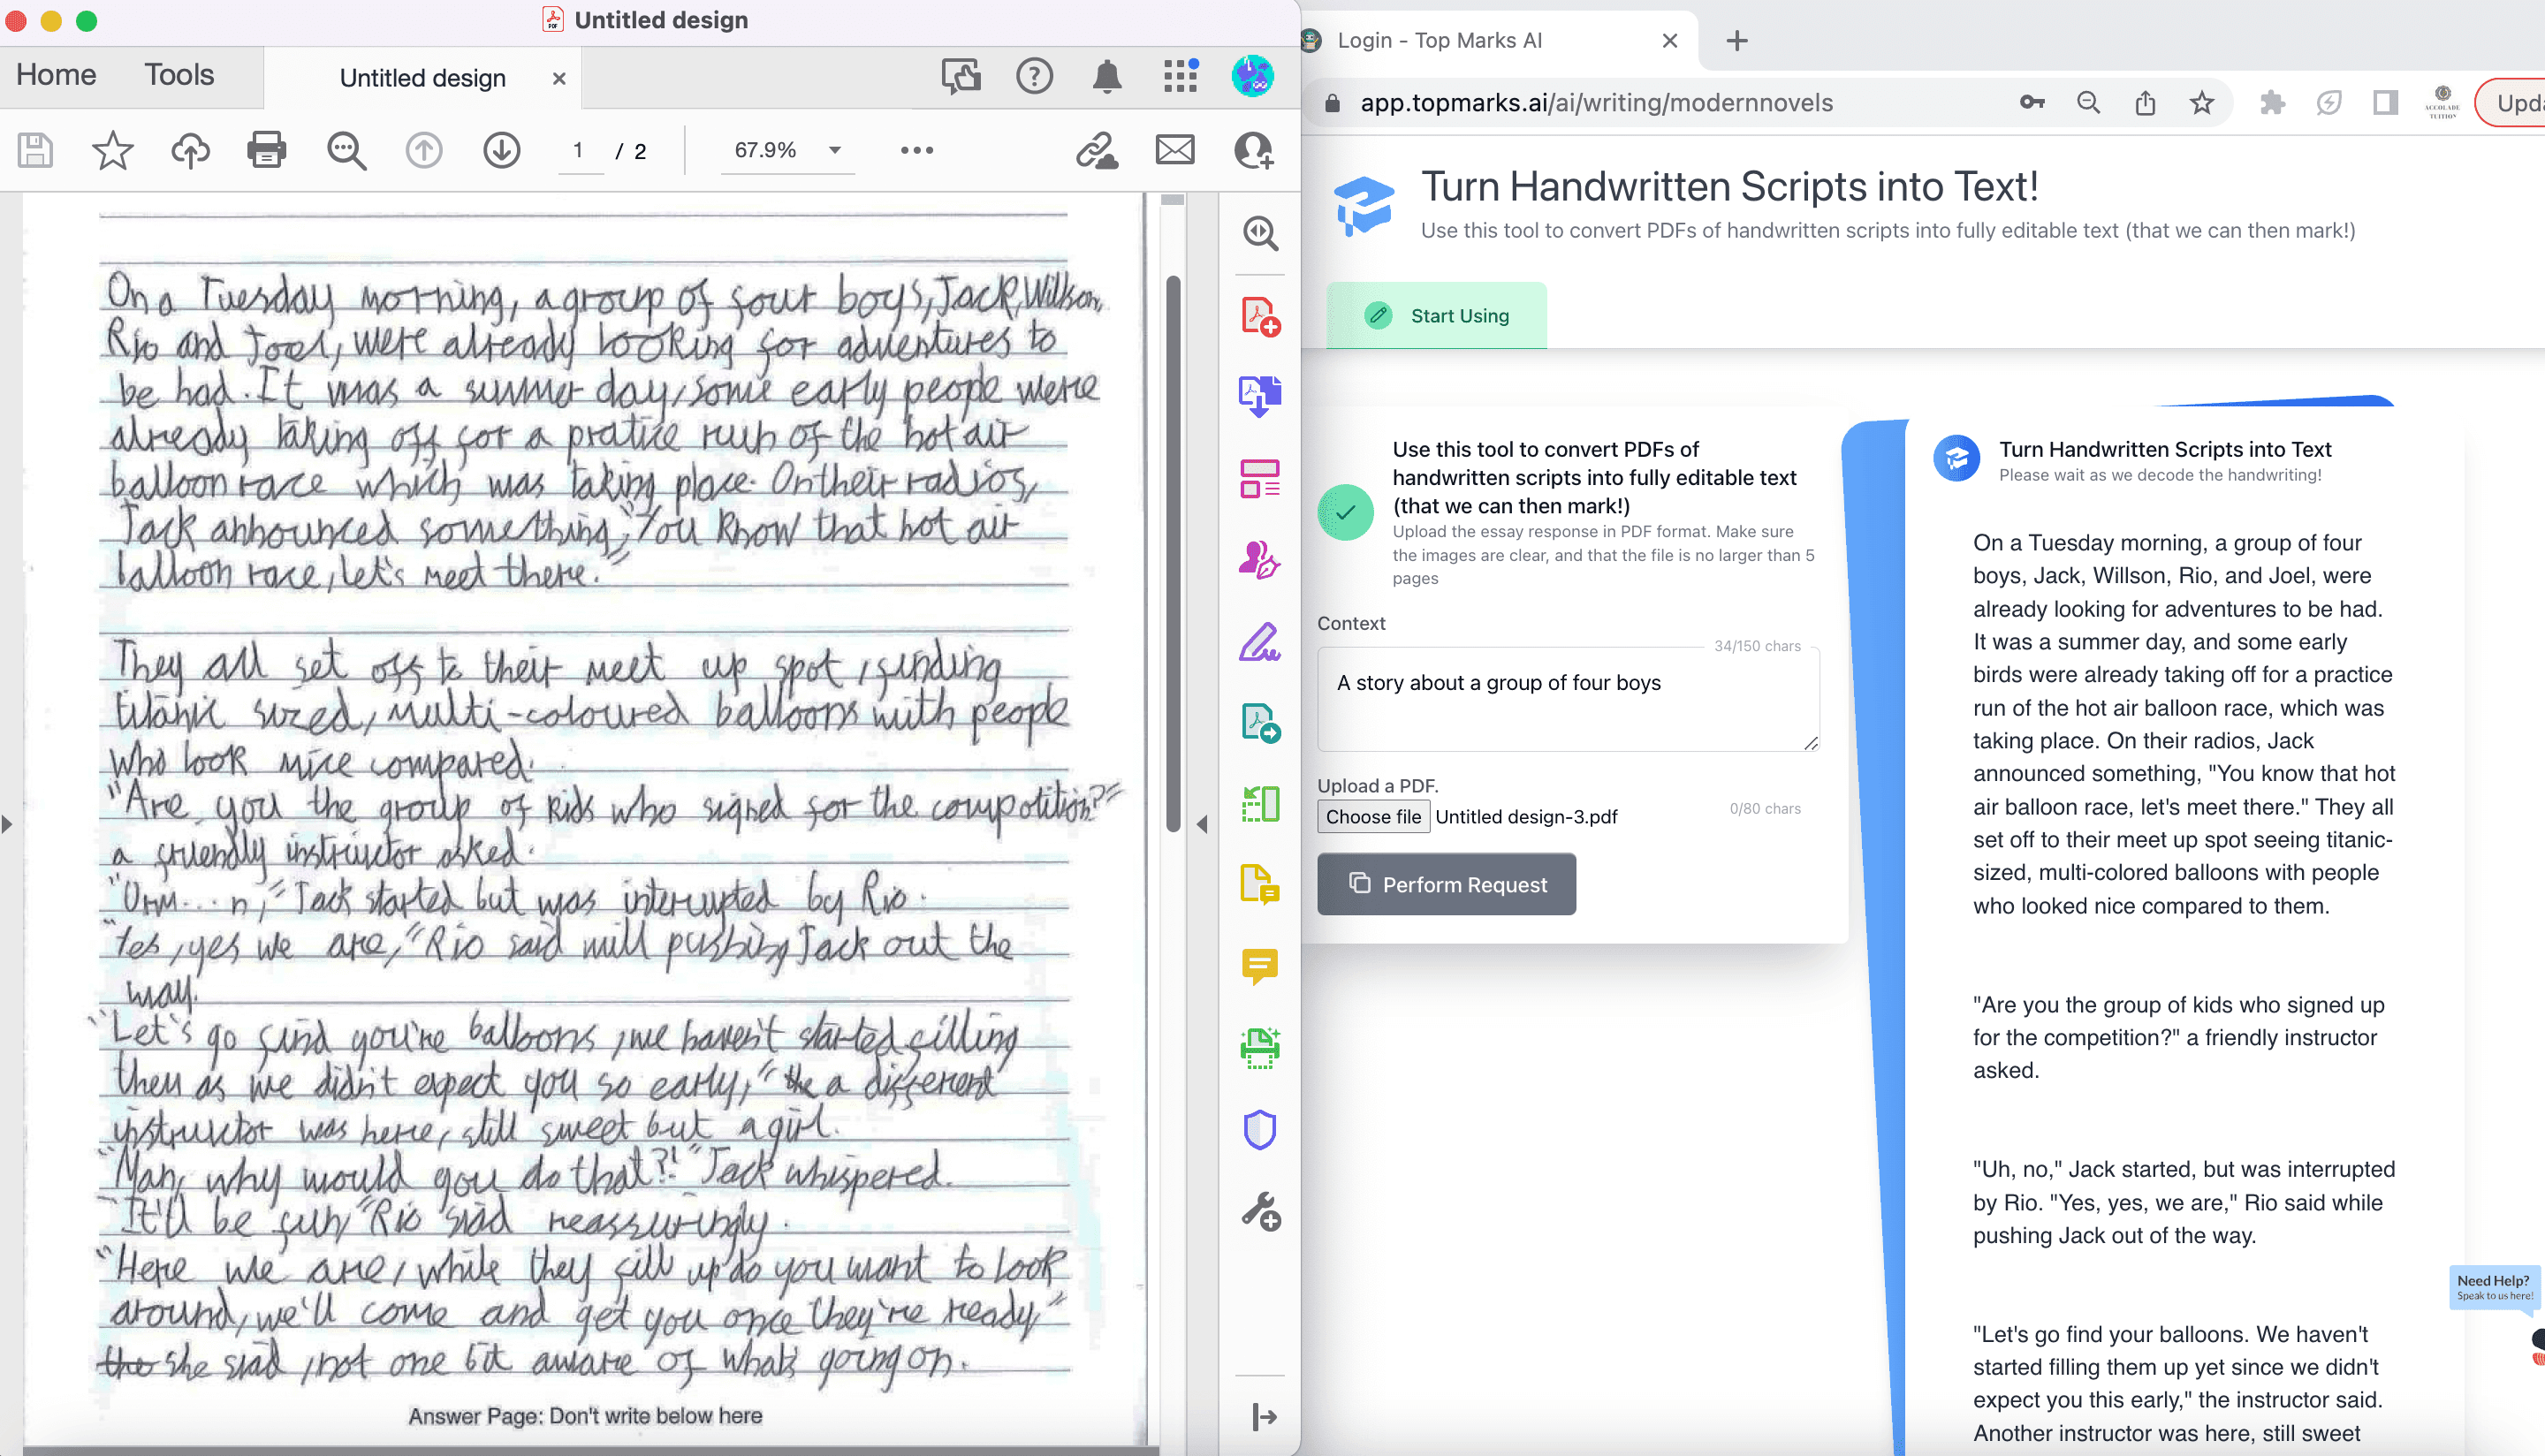 Untitled design
Home
Tools
Untitled design
1 / 2
67.9%
On a Tuesday morning, a group of four boys, Jack, Willson,
Rio and Joel, were already looking for adventures to
be had. It was a summer day, some early people were
already taking off for a pratice run of the hot air
balloon race which was taking place. On their radios,
Jack announced something, "You know that hot air
balloon race, let's meet there."
They all set off to their meet up spot, finding
titanic sized, multi-coloured balloons with people
who look mice compared.
"Are you the group of kids who signed for the compotition?"
a friendly instructor asked.
"Umm... n," Jack started but was interrupted by Rio.
"Yes, yes we are," Rio said will pushing Jack out the
way.
"Let's go find you're balloons, we haven't started filling
them as we didn't expect you so early," the a different
instructor was here, still sweet but a girl.
"Man, why would you do that?!" Jack whispered.
"It'll be fun," Rio siad reassuringly.
"Here we are, while they fill up do you want to look
around, we'll come and get you once they're ready"
the she siad, not one bit aware of what's going on.
Answer Page: Don't write below here
Login - Top Marks AI
app.topmarks.ai/ai/writing/modernnovels
ACCOLADE
TUITION
Upda
Turn Handwritten Scripts into Text!
Use this tool to convert PDFs of handwritten scripts into fully editable text (that we can then mark!)
Start Using
Use this tool to convert PDFs of
handwritten scripts into fully editable text
(that we can then mark!)
Upload the essay response in PDF format. Make sure
the images are clear, and that the file is no larger than 5
pages
Context
34/150 chars
A story about a group of four boys
Upload a PDF.
0/80 chars
Choose file Untitled design-3.pdf
Perform Request
Turn Handwritten Scripts into Text
Please wait as we decode the handwriting!
On a Tuesday morning, a group of four
boys, Jack, Willson, Rio, and Joel, were
already looking for adventures to be had.
It was a summer day, and some early
birds were already taking off for a practice
run of the hot air balloon race, which was
taking place. On their radios, Jack
announced something, "You know that hot
air balloon race, let's meet there." They all
set off to their meet up spot seeing titanic-
sized, multi-colored balloons with people
who looked nice compared to them.
"Are you the group of kids who signed up
for the competition?" a friendly instructor
asked.
"Uh, no," Jack started, but was interrupted
by Rio. "Yes, yes, we are," Rio said while
pushing Jack out of the way.
"Let's go find your balloons. We haven't
started filling them up yet since we didn't
expect you this early," the instructor said.
Another instructor was here, still sweet
Need Help?
Speak to us here!